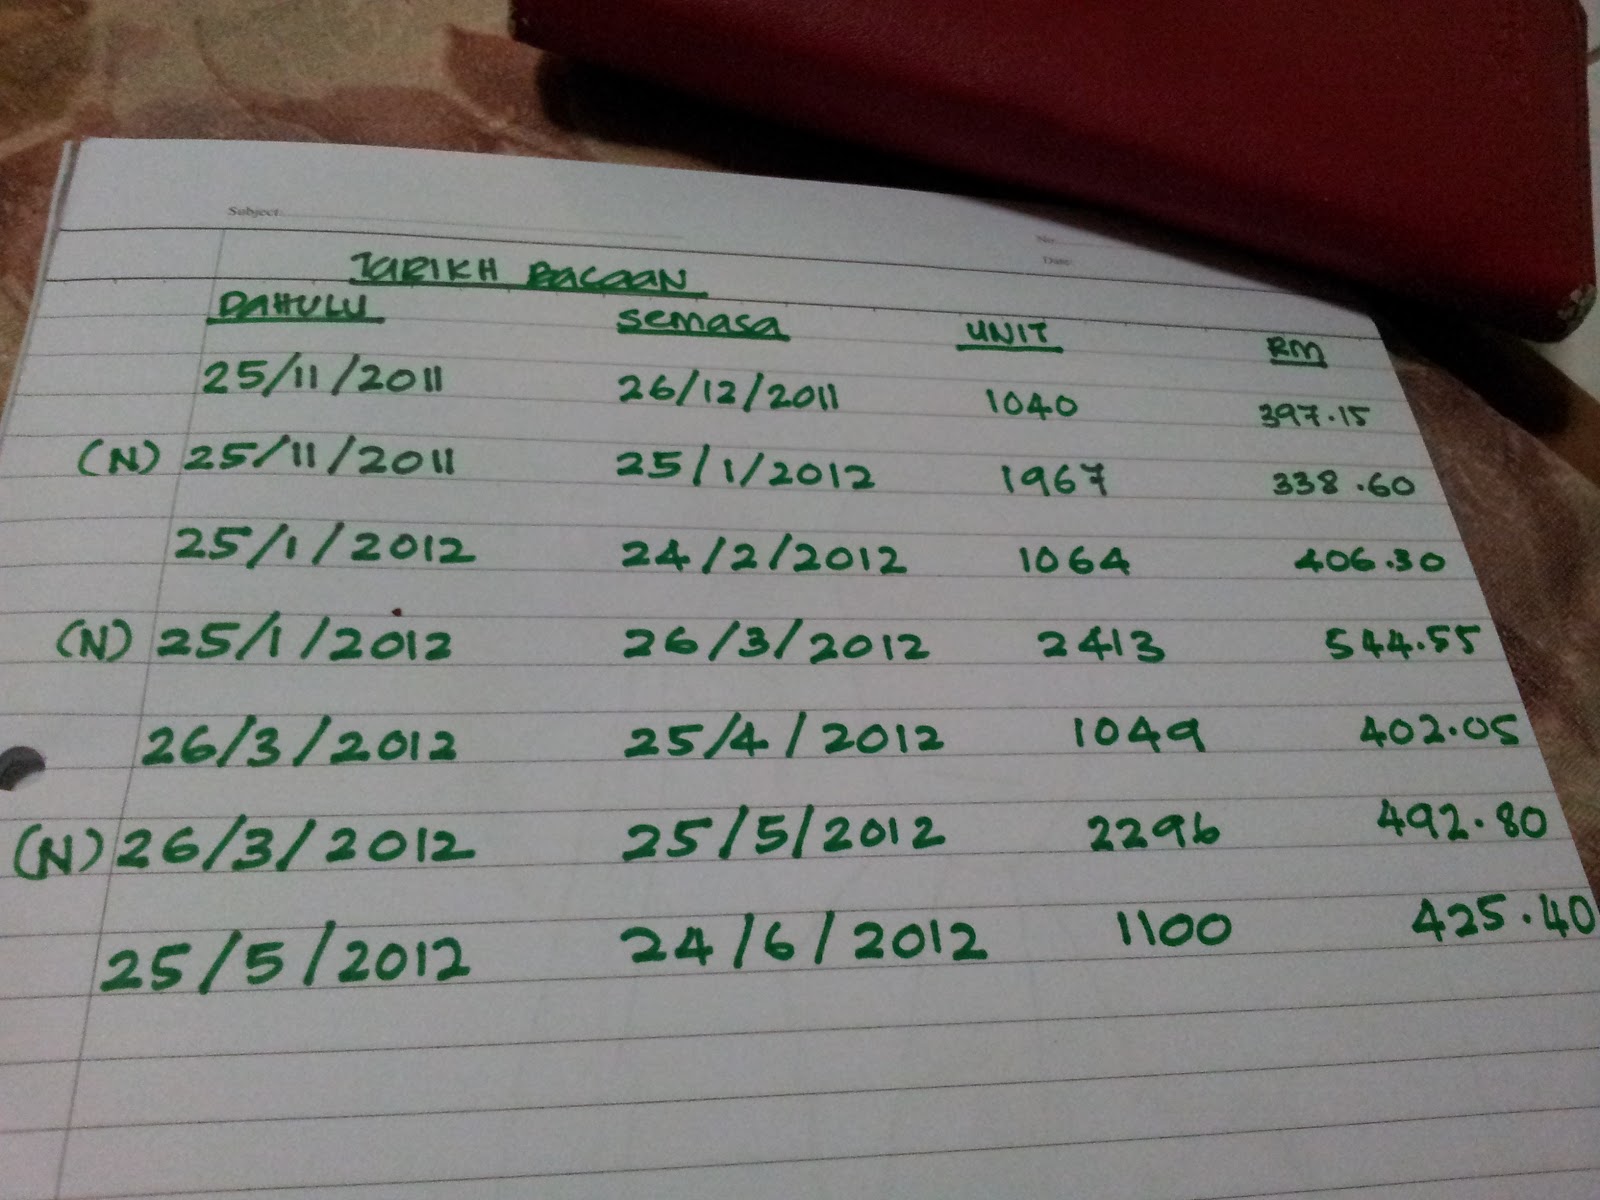 Subject:
No:
Date:
TARIKH BACAAN
DAHULU semasa UNIT RM
25/11/2011 26/12/2011 1040 397.15
(N) 25/11/2011 25/1/2012 1967 338.60
25/1/2012 24/2/2012 1064 406.30
(N) 25/1/2012 26/3/2012 2413 544.55
26/3/2012 25/4/2012 1049 402.05
(N) 26/3/2012 25/5/2012 2296 492.80
25/5/2012 24/6/2012 1100 425.40